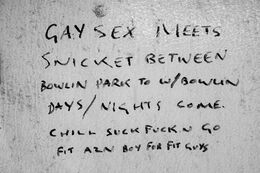 GAY SEX MEETS
SNICKET BETWEEN
BOWLIN PARK TO W/BOWLIN
DAYS/NIGHTS COME.
CHILL SUCK FUCK.N GO
FIT AZN BOY FOR FIT GUYS